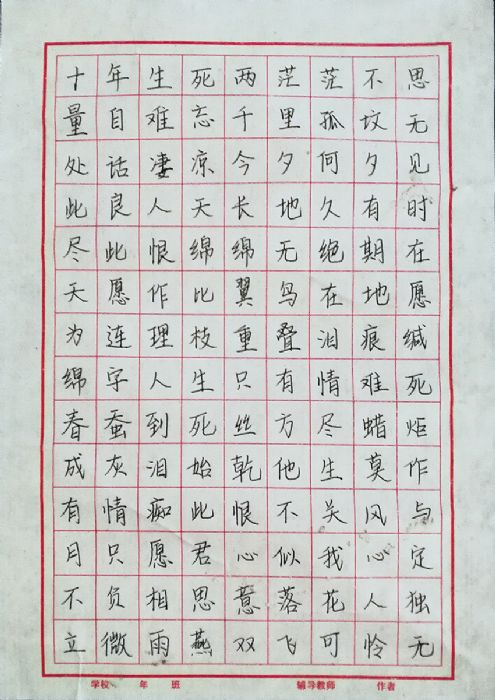 十年生死两茫茫不思
量自难忘千里孤坟无
处话凄凉今夕何夕见
此良人天长地久有时
尽此恨绵绵无绝期在
天愿作比翼鸟在地愿
为连理枝重叠泪痕缄
绵字人生只有情难死
春蚕到死丝方尽蜡炬
成灰泪始乾他生莫作
有情痴此恨不关风与
月只愿君心似我心定
不负相思意落花人独
立微雨燕双飞可怜无
学校 年 班 辅导教师 作者